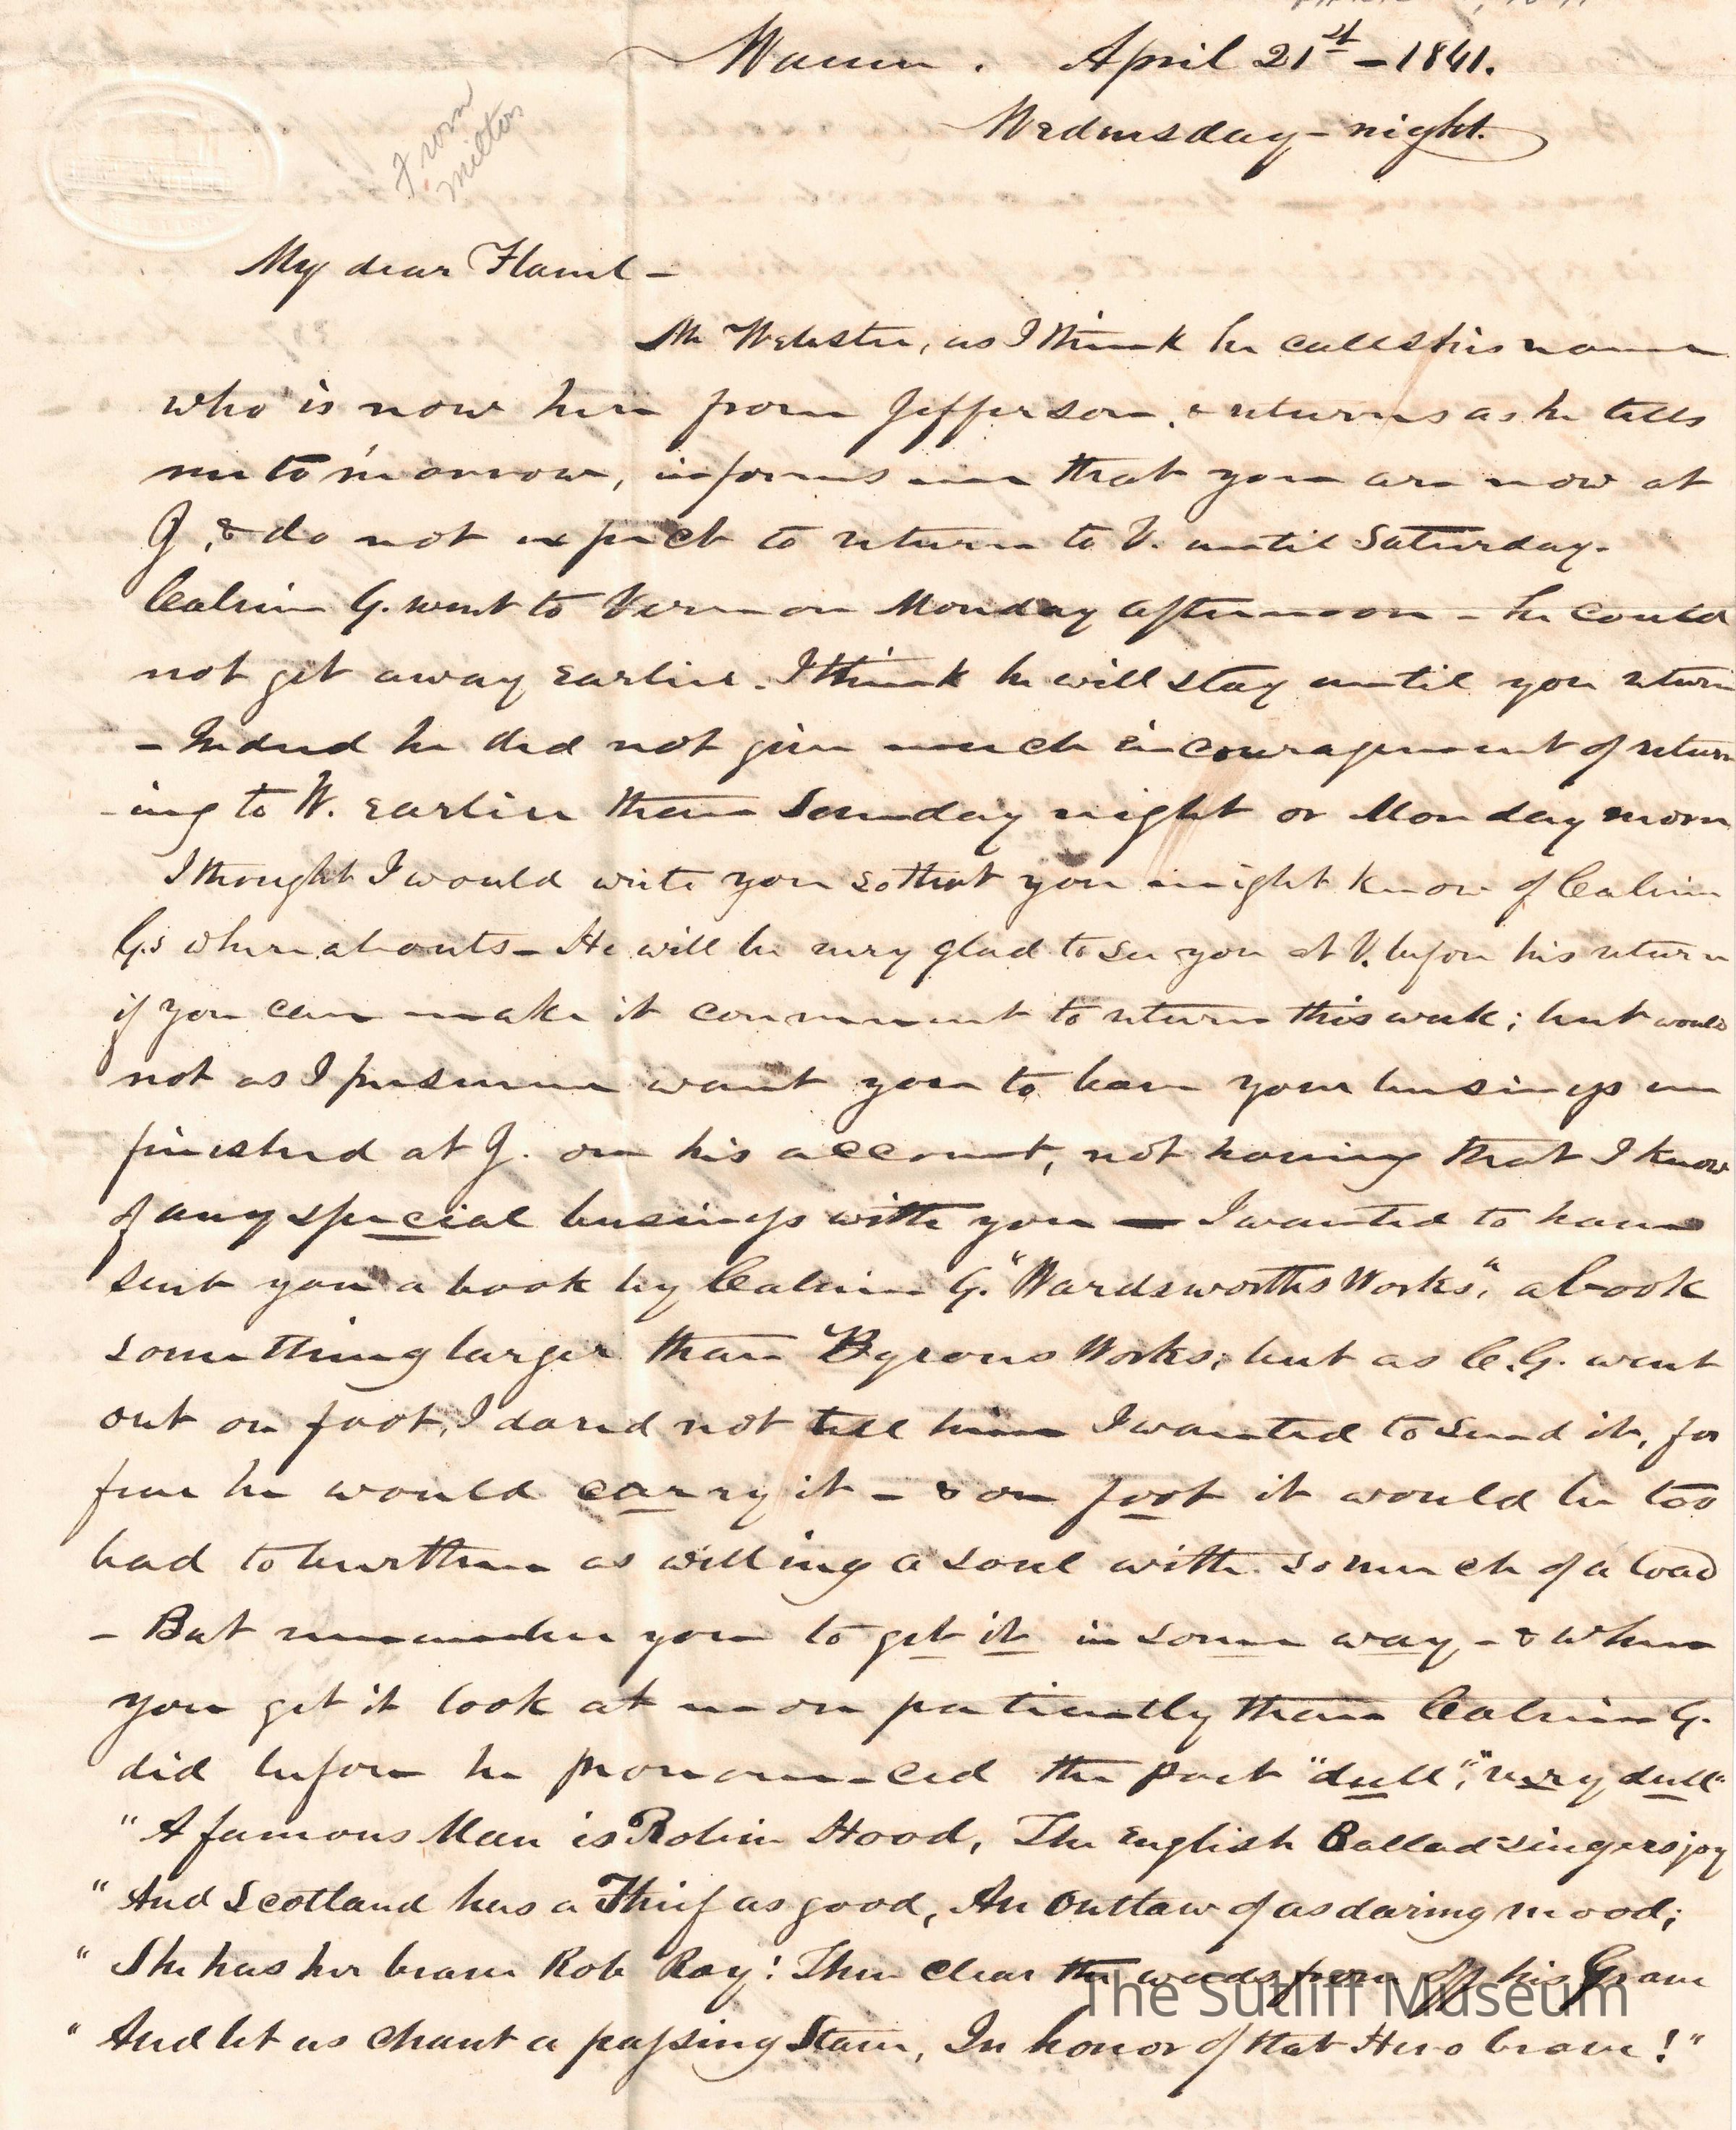 Warren. April 21st – 1841.
Wednesday – night.
From
Milton
My dear Flavel –
Mr Webster, as I think he calls his name
who is now here from Jefferson, & returns as he tells
me tomorrow, informs me that you are now at
J. & do not expect to return to V. until Saturday.
Calvin G. went to Vernon Monday afternoon – he could
not get away earlier. I think he will stay until you return
– Indeed he did not give much encouragement of return
-ing to W. earlier than Sunday night or Monday morn
I thought I would write you so that you might know of Calvin
G.s whereabouts – He will be very glad to see you at V. before his return
if you can make it convenient to return this week; but would
not as I presume want you to leave your business un
finished at J. on his account, not having that I know
of any special business with you – I wanted to have
sent you a book by Calvin G. "Wardsworths Works", a book
something larger than Byrons Works; but as C.G. went
out on foot, I dared not tell him I wanted to send it, for
fear he would carry it – & on foot it would be too
bad to burthen as willing a soul with so much of a load
– But remember you to get it in some way – & when
you get it look at more patiently than Calvin G.
did before he pronounced the poet "dull", "very dull"
"A famous Man is Robin Hood, The English Ballad-singers joy
"And Scotland has a Thief as good, An Outlaw of as daring mood;
"She has her brave Rob Roy! Then clear the weeds from off his Grave
"And let us chant a passing Stave, In honor of that Hero brave!"
The Sutliff Museum